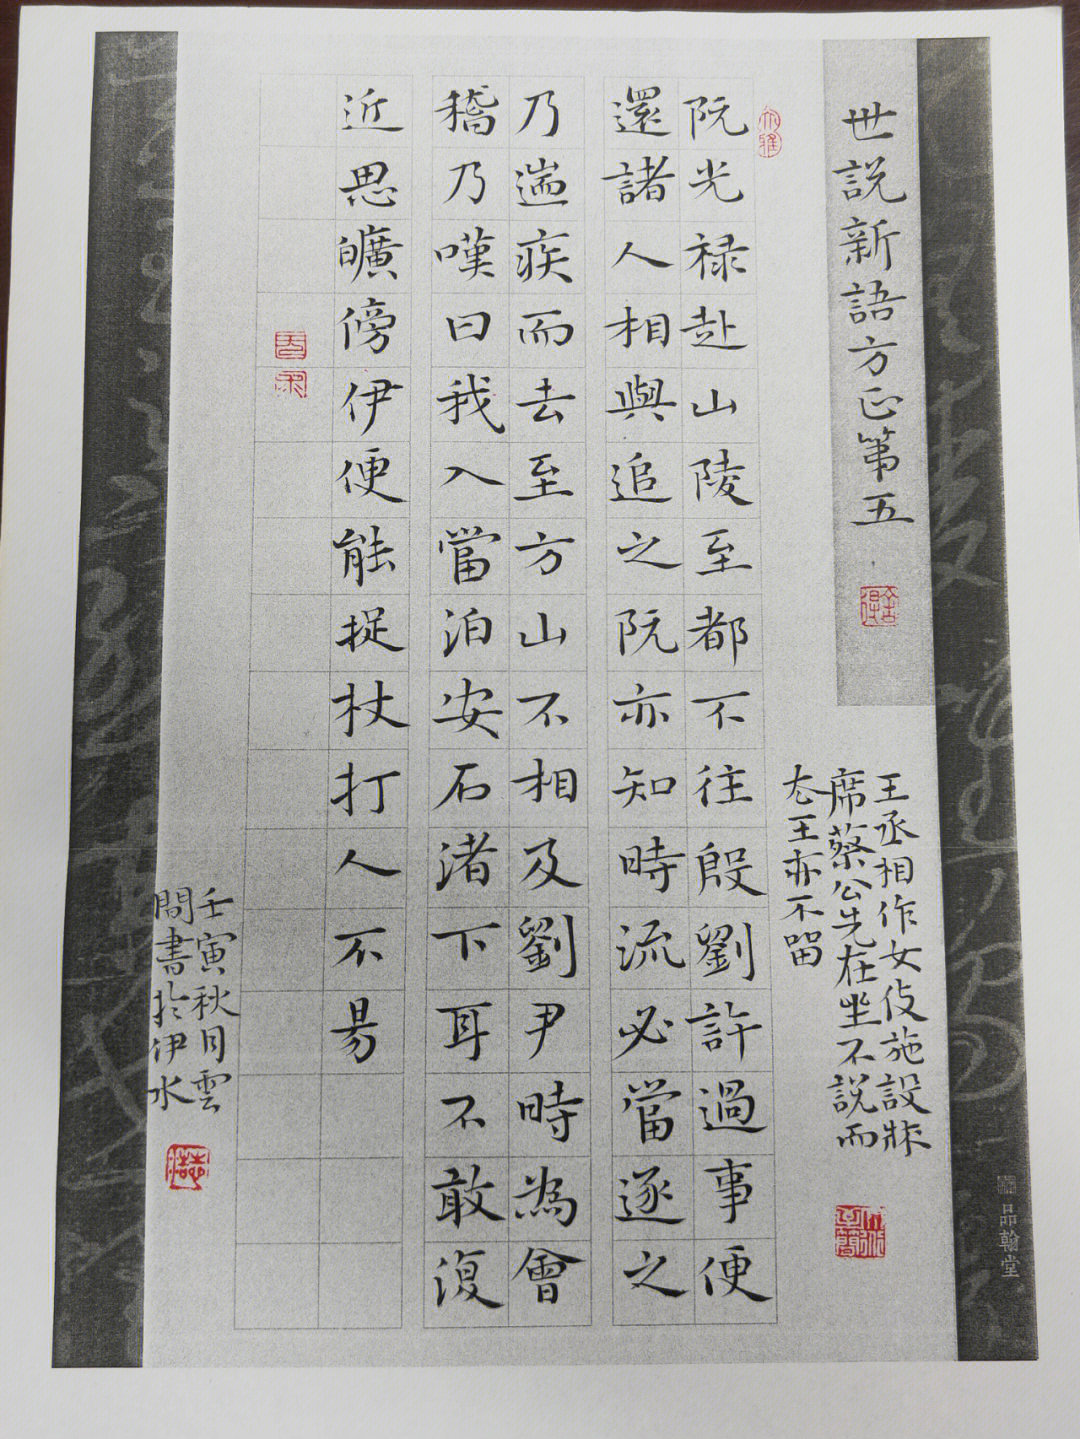 世説新語方正第五
王丞相作女伎施設牀
席蔡公先在坐不説而
去王亦不留
阮光禄赴山陵至都不往殷劉許過事便
還諸人相與追之阮亦知時流必當逐之
乃遄疾而去至方山不相及劉尹時為會
稽乃嘆曰我入當泊安石渚下耳不敢復
近思曠傍伊便能捉杖打人不易
壬寅秋月雲
閒書於伊水
品翰堂